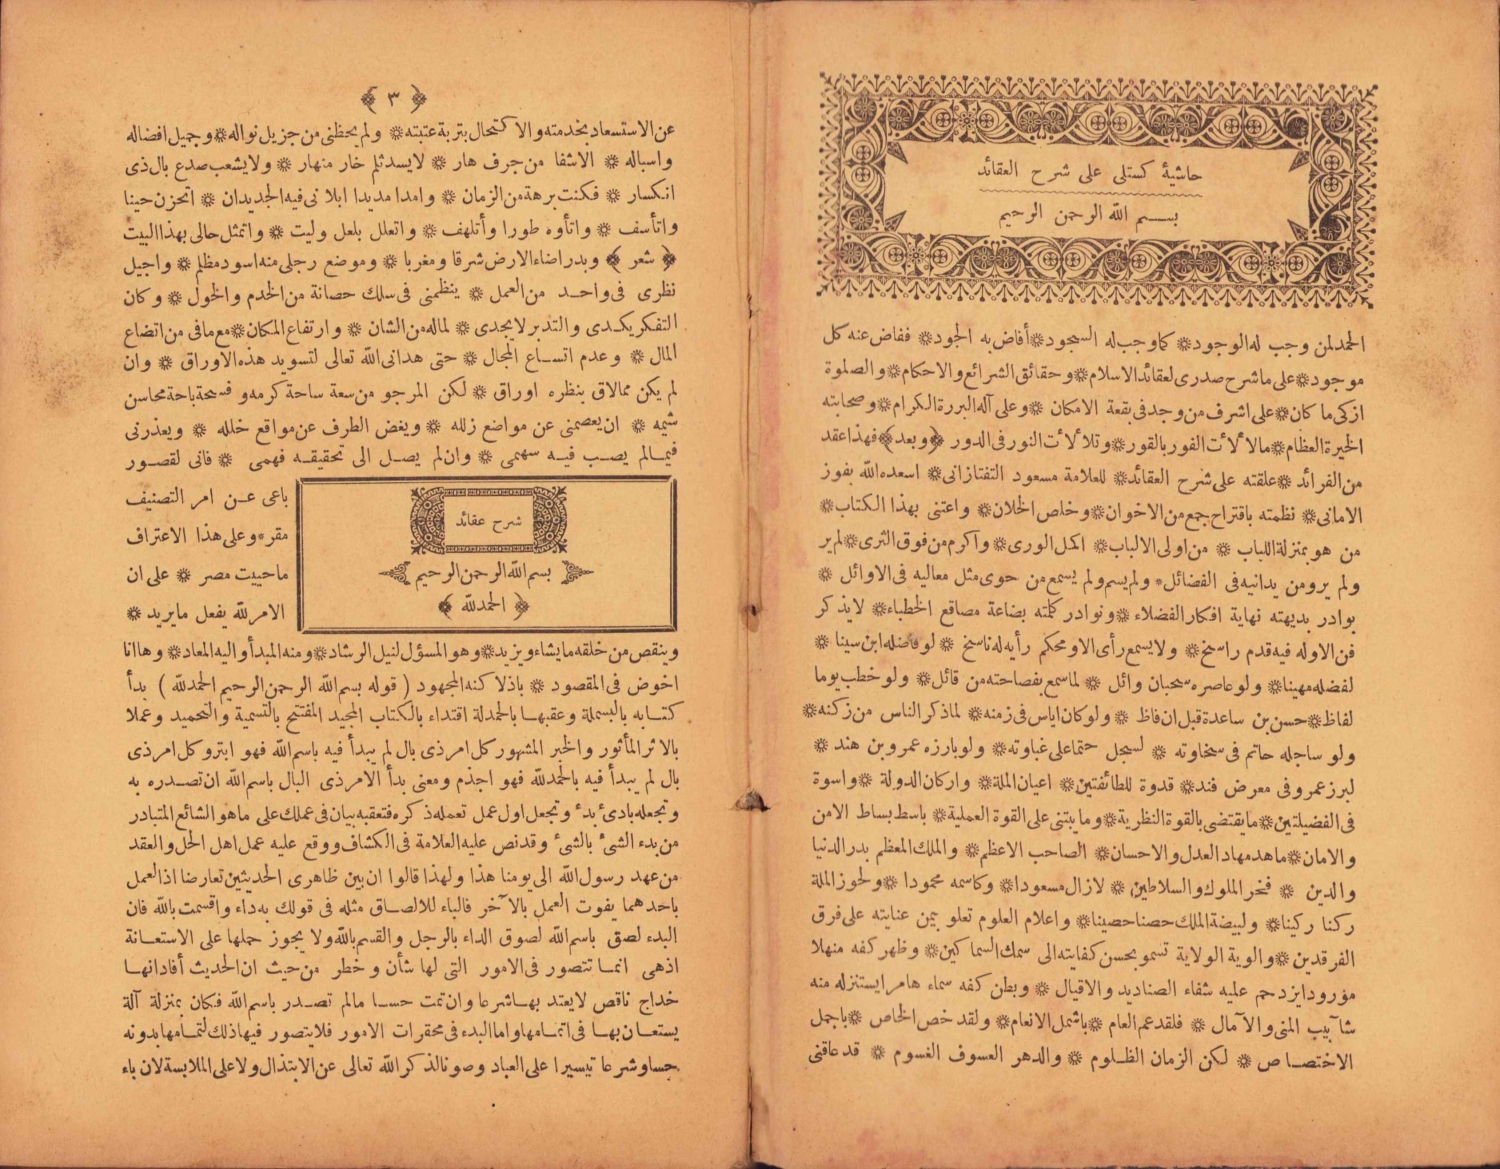 حاشية كستلى على شرح العقائد
بسم الله الرحمن الرحيم
الحمد لمن وجب له الوجود ❊ كما وجب له السجود ❊ أفاض به الجود ❊ ففاض عنه كل
موجود ❊ على ما شرح صدرى لعقائد الاسلام ❊ وحقائق الشرائع والاحكام ❊ والصلوة
ازكى ما كان ❊ على اشرف من وجد فى بقعة الامكان ❊ وعلى آله البررة الكرام ❊ وصحابته
الخيرة العظام ❊ ما لألأت الفور بالقور ❊ وتلألأت النور فى الدور ﴿وبعد﴾ فهذا عقد
من الفرائد ❊ علقته على شرح العقائد ❊ للعلامة مسعود التفتازانى ❊ اسعده الله بفوز
الامانى ❊ نظمته باقتراح جمع من الاخوان ❊ وخلص الخلان ❊ واعتنى بهذا الكتاب ❊
من هو بمنزلة اللباب ❊ من اولى الالباب ❊ اكمل الورى ❊ واكرم من فوق الثرى ❊ لم ير
ولم يرو من يدانيه فى الفضائل ❊ ولم يسم ولم يسمع من حوى مثل معاليه فى الاوائل ❊
بوادر بديهته نهاية افكار الفضلاء ❊ ونوادر كلمته بضاعة مصاقع الخطباء ❊ لا يذكر
فن الا وله فيه قدم راسخ ❊ ولا يسمع رأى الا ومحكم رأيه له ناسخ ❊ لو فاضله ابن سينا ❊
لفضله مهينا ❊ ولو عاصره سحبان وائل ❊ لما سمع بفصاحته من قائل ❊ ولو خطب يوما
لفاظ ❊ حسن بن ساعدة قبل ان فاظ ❊ ولو كان اياس فى زمنه ❊ لما ذكر الناس من زكنه ❊
ولو ساجله حاتم فى سخاوته ❊ لسجل حتما على غباوته ❊ ولو بارزه عمرو بن هند ❊
لبرز عمرو فى معرض فند ❊ قدوة للطائفتين ❊ اعيان الملة ❊ واركان الدولة ❊ واسوة
فى الفضيلتين ❊ ما يقتضى بالقوة النظرية ❊ وما يبتنى على القوة العملية ❊ باسط بساط الامن
والامان ❊ ماهد مهاد العدل والاحسان ❊ الصاحب الاعظم ❊ والملك المعظم بدر الدنيا
والدين ❊ فخر الملوك والسلاطين ❊ لازال مسعودا ❊ وكاسمه محمودا ❊ ولحوز الملة
ركنا ركينا ❊ ولبيضة الملك حصنا حصينا ❊ واعلام العلوم تعلو بيمن عنايته على فرق
الفرقدين ❊ والوية الولاية تسمو بحسن كفايته الى سمك السماكين ❊ وظهر كفه منهلا
مورودا يزدحم عليه شفاه الصناديد والاقيال ❊ وبطن كفه سماء هامرا يستنزله منه
شآبيب المنى والآمال ❊ فلقد عم العام ❊ باشمل الانعام ❊ ولقد خص الخاص ❊ باجمل
الاختصاص ❊ لكن الزمان الظلوم ❊ والدهر العسوف الغسوم ❊ قد عاقنى
﴿٣﴾
عن الاستسعاد بخدمته والاكتحال بتربة عتبته ❊ ولم يحظنى من جزيل نواله ❊ وجميل افضاله
واسباله ❊ الا شفا من جرف هار ❊ لا يسد ثلم خار منهار ❊ ولا يشعب صدع بال ذى
انكسار ❊ فكنت برهة من الزمان ❊ وامدا مديدا ابلانى فيه الجديدان ❊ اتحزن حينا
واتأسف ❊ واتأوه طورا وأتلهف ❊ واتعلل بلعل وليت ❊ واتمثل حالى بهذا البيت
﴿شعر﴾ وبدر اضاء الارض شرقا ومغربا ❊ وموضع رجلى منه اسود مظلم ❊ واجيل
نظرى فى واحد من العمل ❊ ينظمنى فى سلك حصانة من الخدم والخول ❊ وكان
التفكر يكدى والتدبر لا يجدى ❊ لما له من الشان ❊ وارتفاع المكان ❊ مع ما فى من اتضاع
المال ❊ وعدم اتساع المجال ❊ حتى هدانى الله تعالى لتسويد هذه الاوراق ❊ وان
لم يكن مما لاق بنظره اوراق ❊ لكن المرجو من سعة ساحة كرمه وفسحة باحة محاسن
شيمه ❊ ان يعصمنى عن مواضع زلله ❊ ويغض الطرف عن مواقع خلله ❊ ويعذرنى
فيما لم يصب فيه سهمى ❊ وان لم يصل الى تحقيقه فهمى ❊ فانى لقصور
باعى عن امر التصنيف
مقر ❊ وعلى هذا الاعتراف
ما حييت مصر ❊ على ان
الامر لله يفعل ما يريد ❊
شرح عقائد
بسم الله الرحمن الرحيم
﴿الحمد لله﴾
وينقص من خلقه ما يشاء ويزيد ❊ وهو المسؤل لنيل الرشاد ❊ ومنه المبدأ واليه المعاد ❊ وها انا
اخوض فى المقصود ❊ باذلا كنه المجهود (قوله بسم الله الرحمن الرحيم الحمد لله) بدأ
كتابه بالبسملة وعقبها بالحمدلة اقتداء بالكتاب المجيد المفتتح بالتسمية والتحميد وعملا
بالاثر المأثور والخبر المشهور كل امر ذى بال لم يبدأ فيه باسم الله فهو ابتر وكل امر ذى
بال لم يبدأ فيه بالحمد لله فهو اجذم ومعنى بدأ الامر ذى البال باسم الله ان تصدره به
وتجعله بادئ بدء وتجعل اول عمل تعمله ذكره فتعقبه بيان فى عملك على ما هو الشائع المتبادر
من بدء الشئ بالشئ وقد نص عليه العلامة فى الكشاف ووقع عليه عمل اهل الحل والعقد
من عهد رسول الله الى يومنا هذا ولهذا قالوا ان بين ظاهرى الحديثين تعارضا اذ العمل
باحدهما يفوت العمل بالآخر فالباء للالصاق مثله فى قولك به داء واقسمت بالله فان
البدء لصق باسم الله لصوق الداء بالرجل والقسم بالله ولا يجوز حملها على الاستعانة
اذ هى انما تتصور فى الامور التى لها شأن وخطر من حيث ان الحديث أفاد انها
خداج ناقص لا يعتد بها شرعا وان تمت حسا ما لم تصدر باسم الله فكان بمنزلة آلة
يستعان بها فى اتمامها واما البدء فى محقرات الامور فلا يتصور فيها ذلك لتمامها بدونه
حسا وشرعا تيسيرا على العباد وصونا لذكر الله تعالى عن الابتذال ولا على الملابسة لان باء